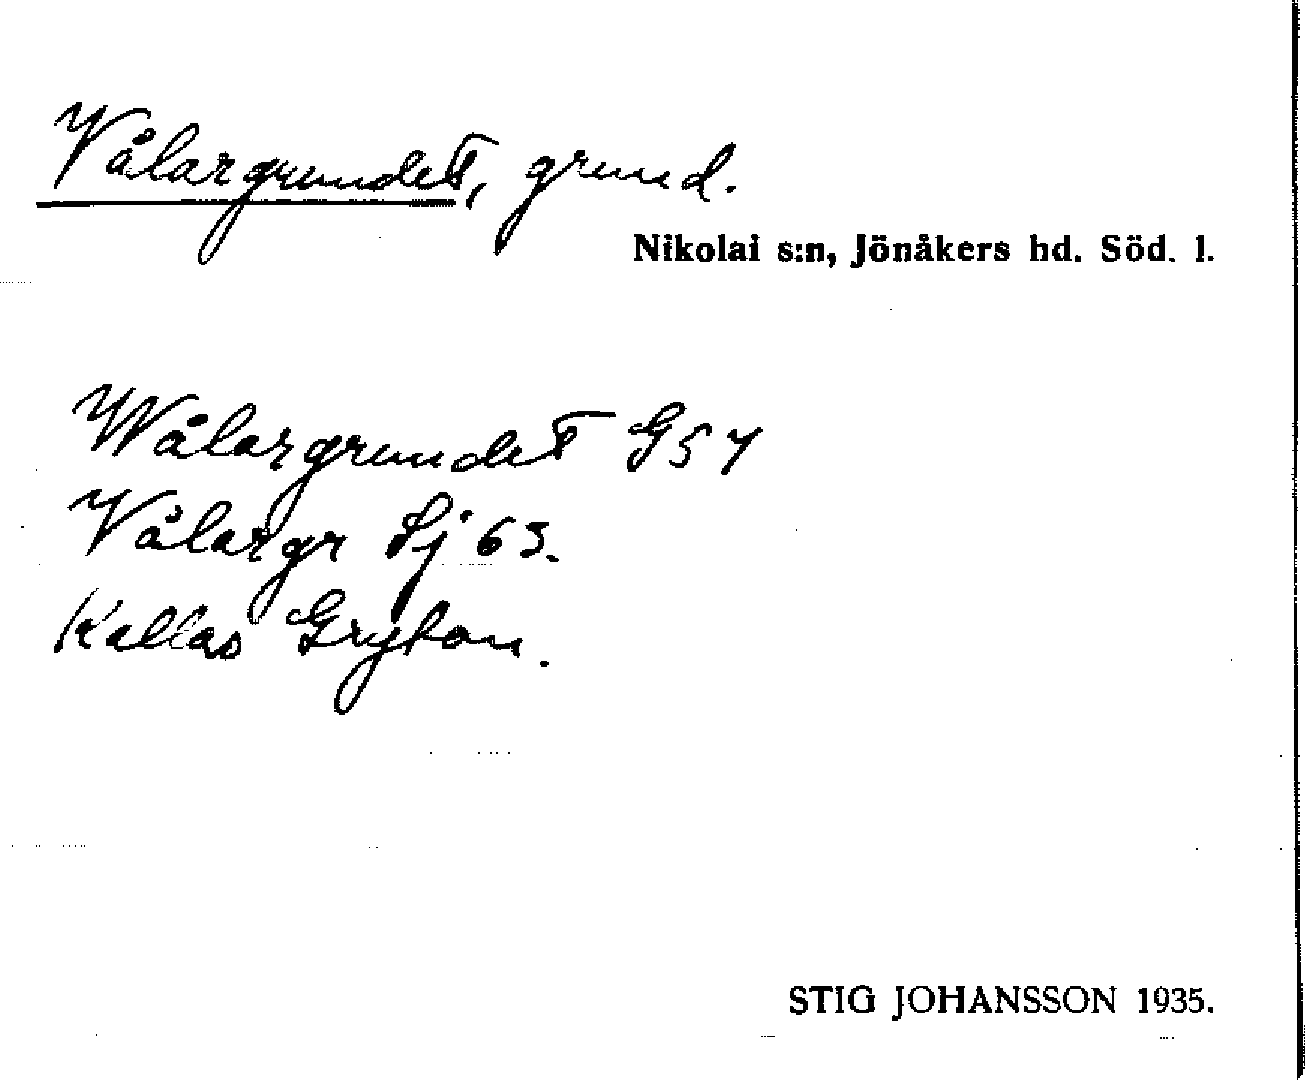 Vålargrundet, grund.
Nikolai s:n, Jönåkers hd. Söd. l.
Wålargrundet G57
Vålargr Sj 63.
Kallas Gryton.
STIG JOHANSSON 1935.